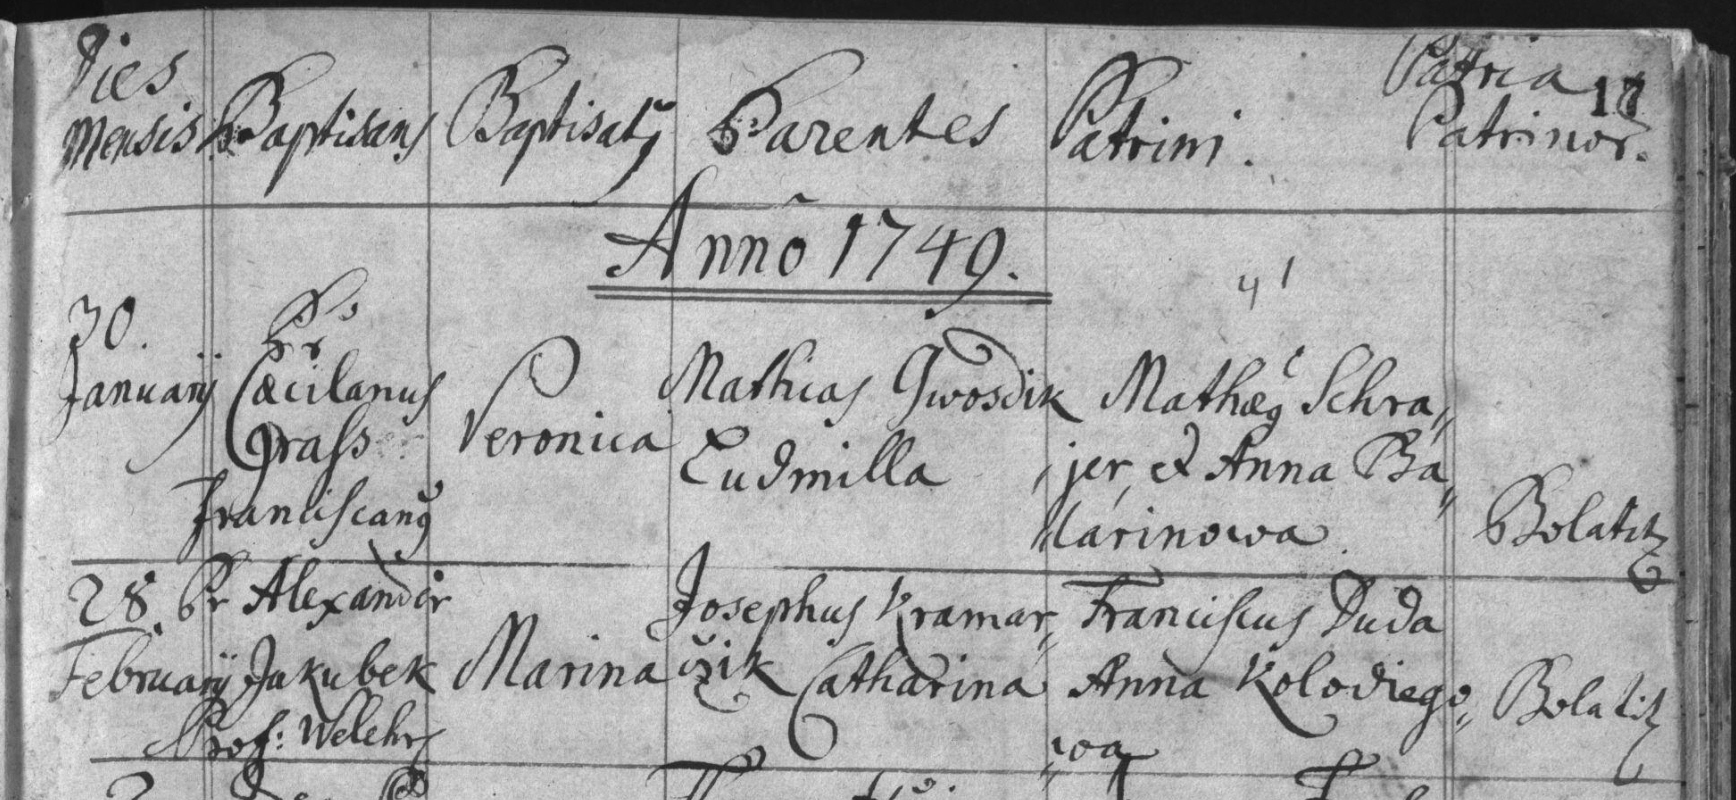 Dies Mensis
Baptisans
Baptisatus
Parentes
Patrini.
Patria Patrinor.
17
Anno 1749.
41
30.
Januarij
Ps
Pr
Cæcilanus
Grass
Franciscanus
Veronica
Mathias Gwosdik
Ludmilla
Mathæus Schra„
jer, et Anna Ba„
larinowa
Bolatitz
28.
Februarij
Pr Alexander
Jakubek
Prof: Welehr
Marina
Josephus Kramar„
czik Catharina
Franciscus Duda
Anna Kolodiego„
„wa
Bolatitz